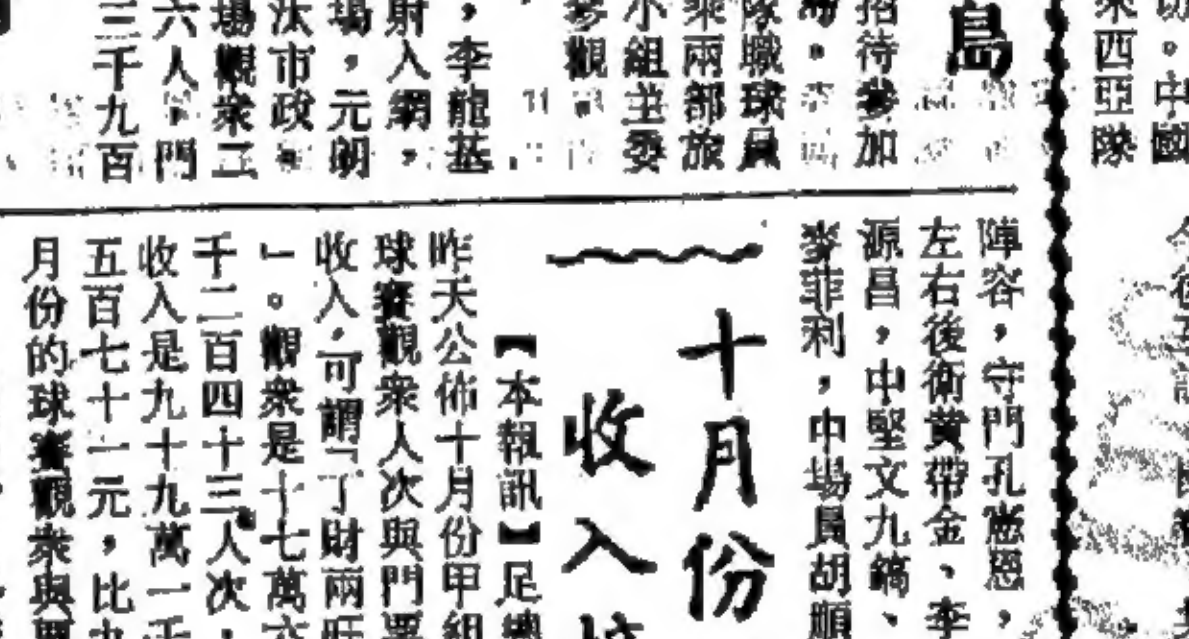 切。中國
來西亞隊
島
招待參加
隊職球員
乘兩部旅
小組主委
參觀。
，李龍基
射入網，
場，元朗
汰市政。
場觀衆二
六人，門
三千九百
陣容，守門孔憲恩，
左右後衛黄帶金、李
源昌，中堅文九鎬、
麥菲利，中場員胡順
十月份
收入
【本報訊】足總
昨天公佈十月份甲組
球賽觀衆人次與門票
收入，可謂「丁財兩旺
」。觀衆是十七萬六
千二百四十三人次，
收入是九十九萬一千
五百七十一元，比九
月份的球賽觀衆與門